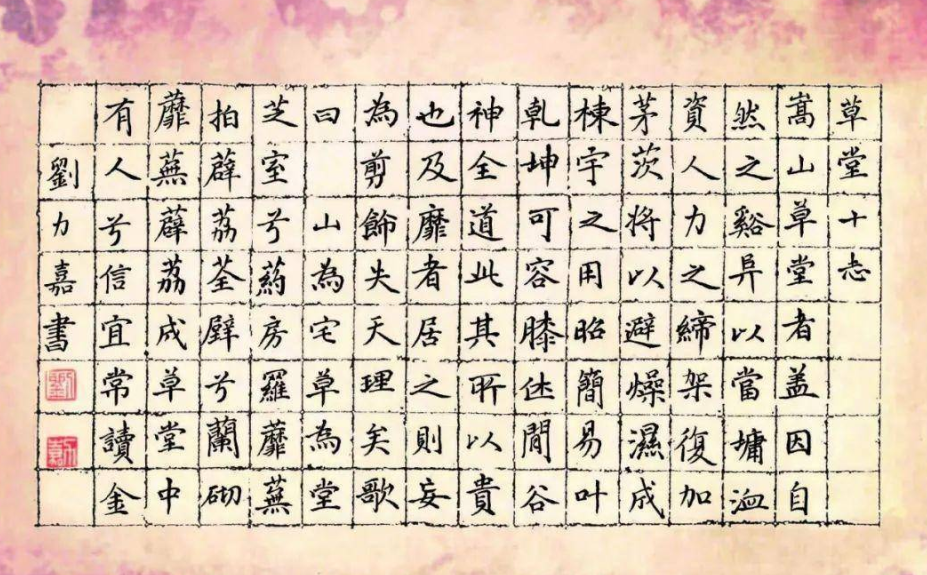 草堂十志
嵩山草堂者盖因自
然之谿阜以當墉洫
資人力之締架復加
茅茨將以避燥濕成
棟宇之用昭簡易叶
乾坤可容膝休閒谷
神全道此其所以貴
也及靡者居之則妄
為剪飾失天理矣歌
曰 山為宅草為堂
芝室兮葯房羅蘼蕪
拍薜荔荃壁兮蘭砌
蘼蕪薜荔成草堂中
有人兮信宜常讀金
劉力嘉書